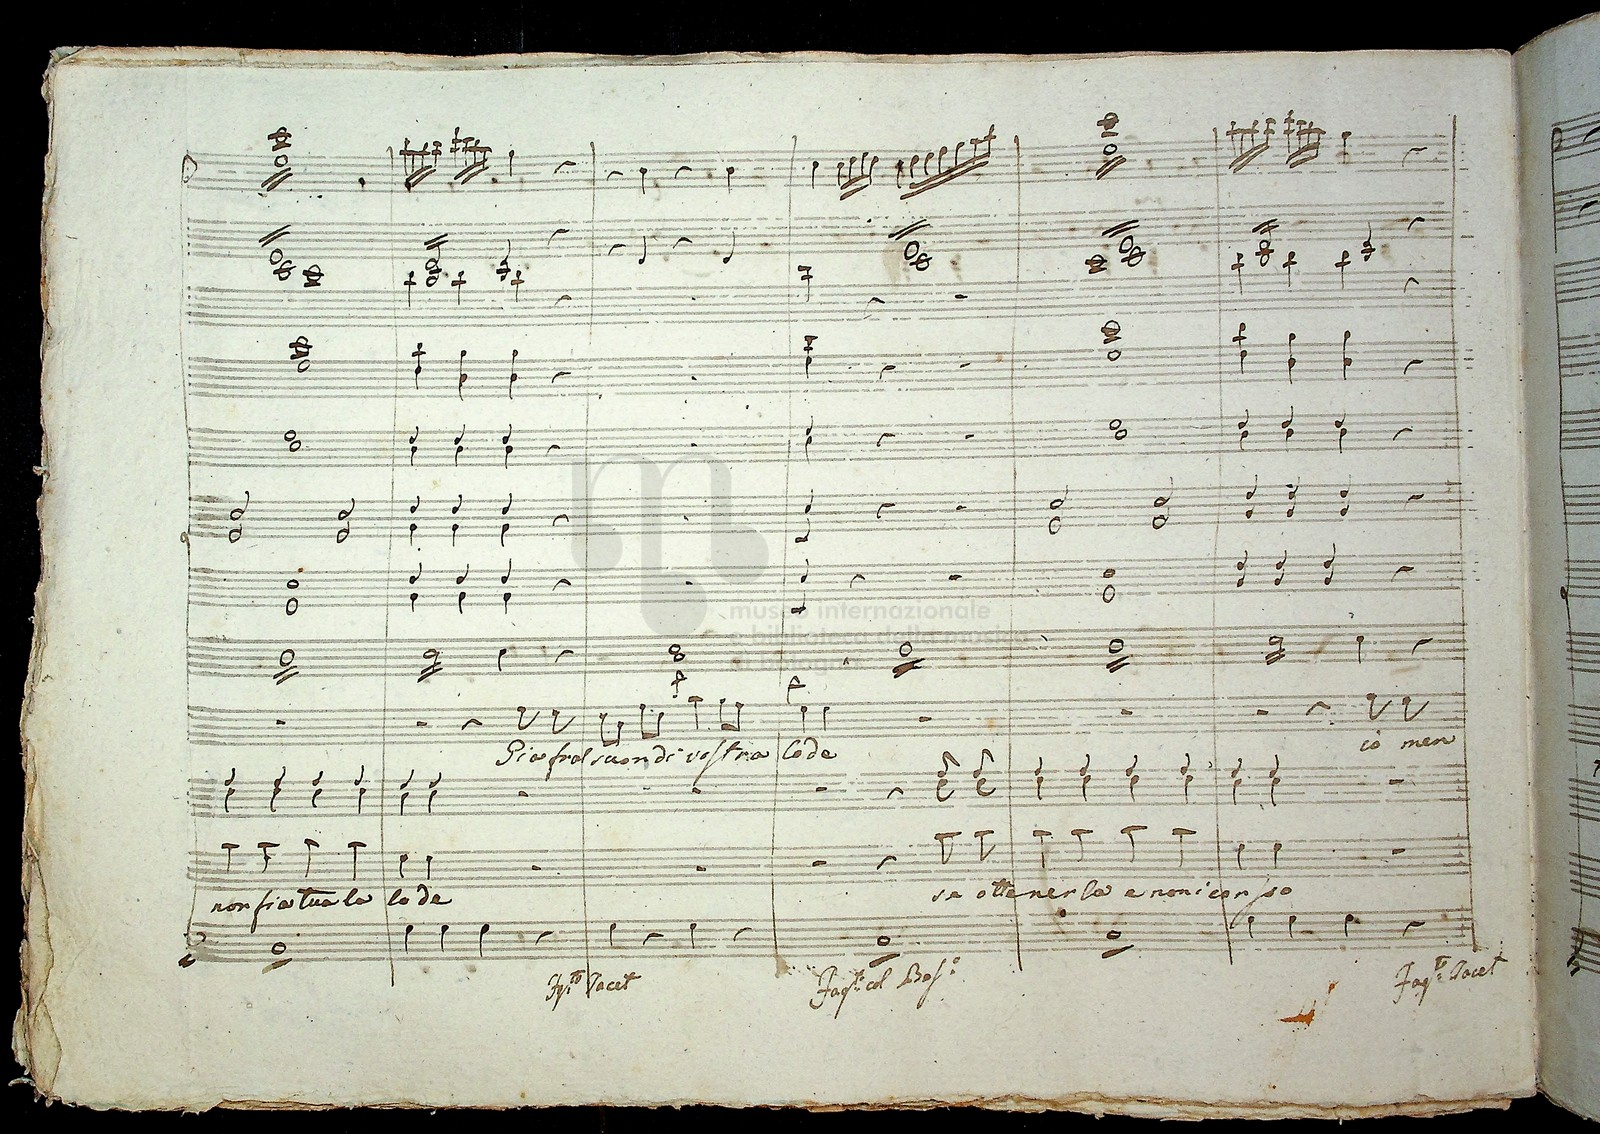 Gia fral suon di vostra lode
io men
non fia tua la lode
se ottenerla e non i
Fg.to Tacet
Fag.to col Bas.o
Fag.to Tacet
museo internazionale
e biblioteca della musica
di bologna